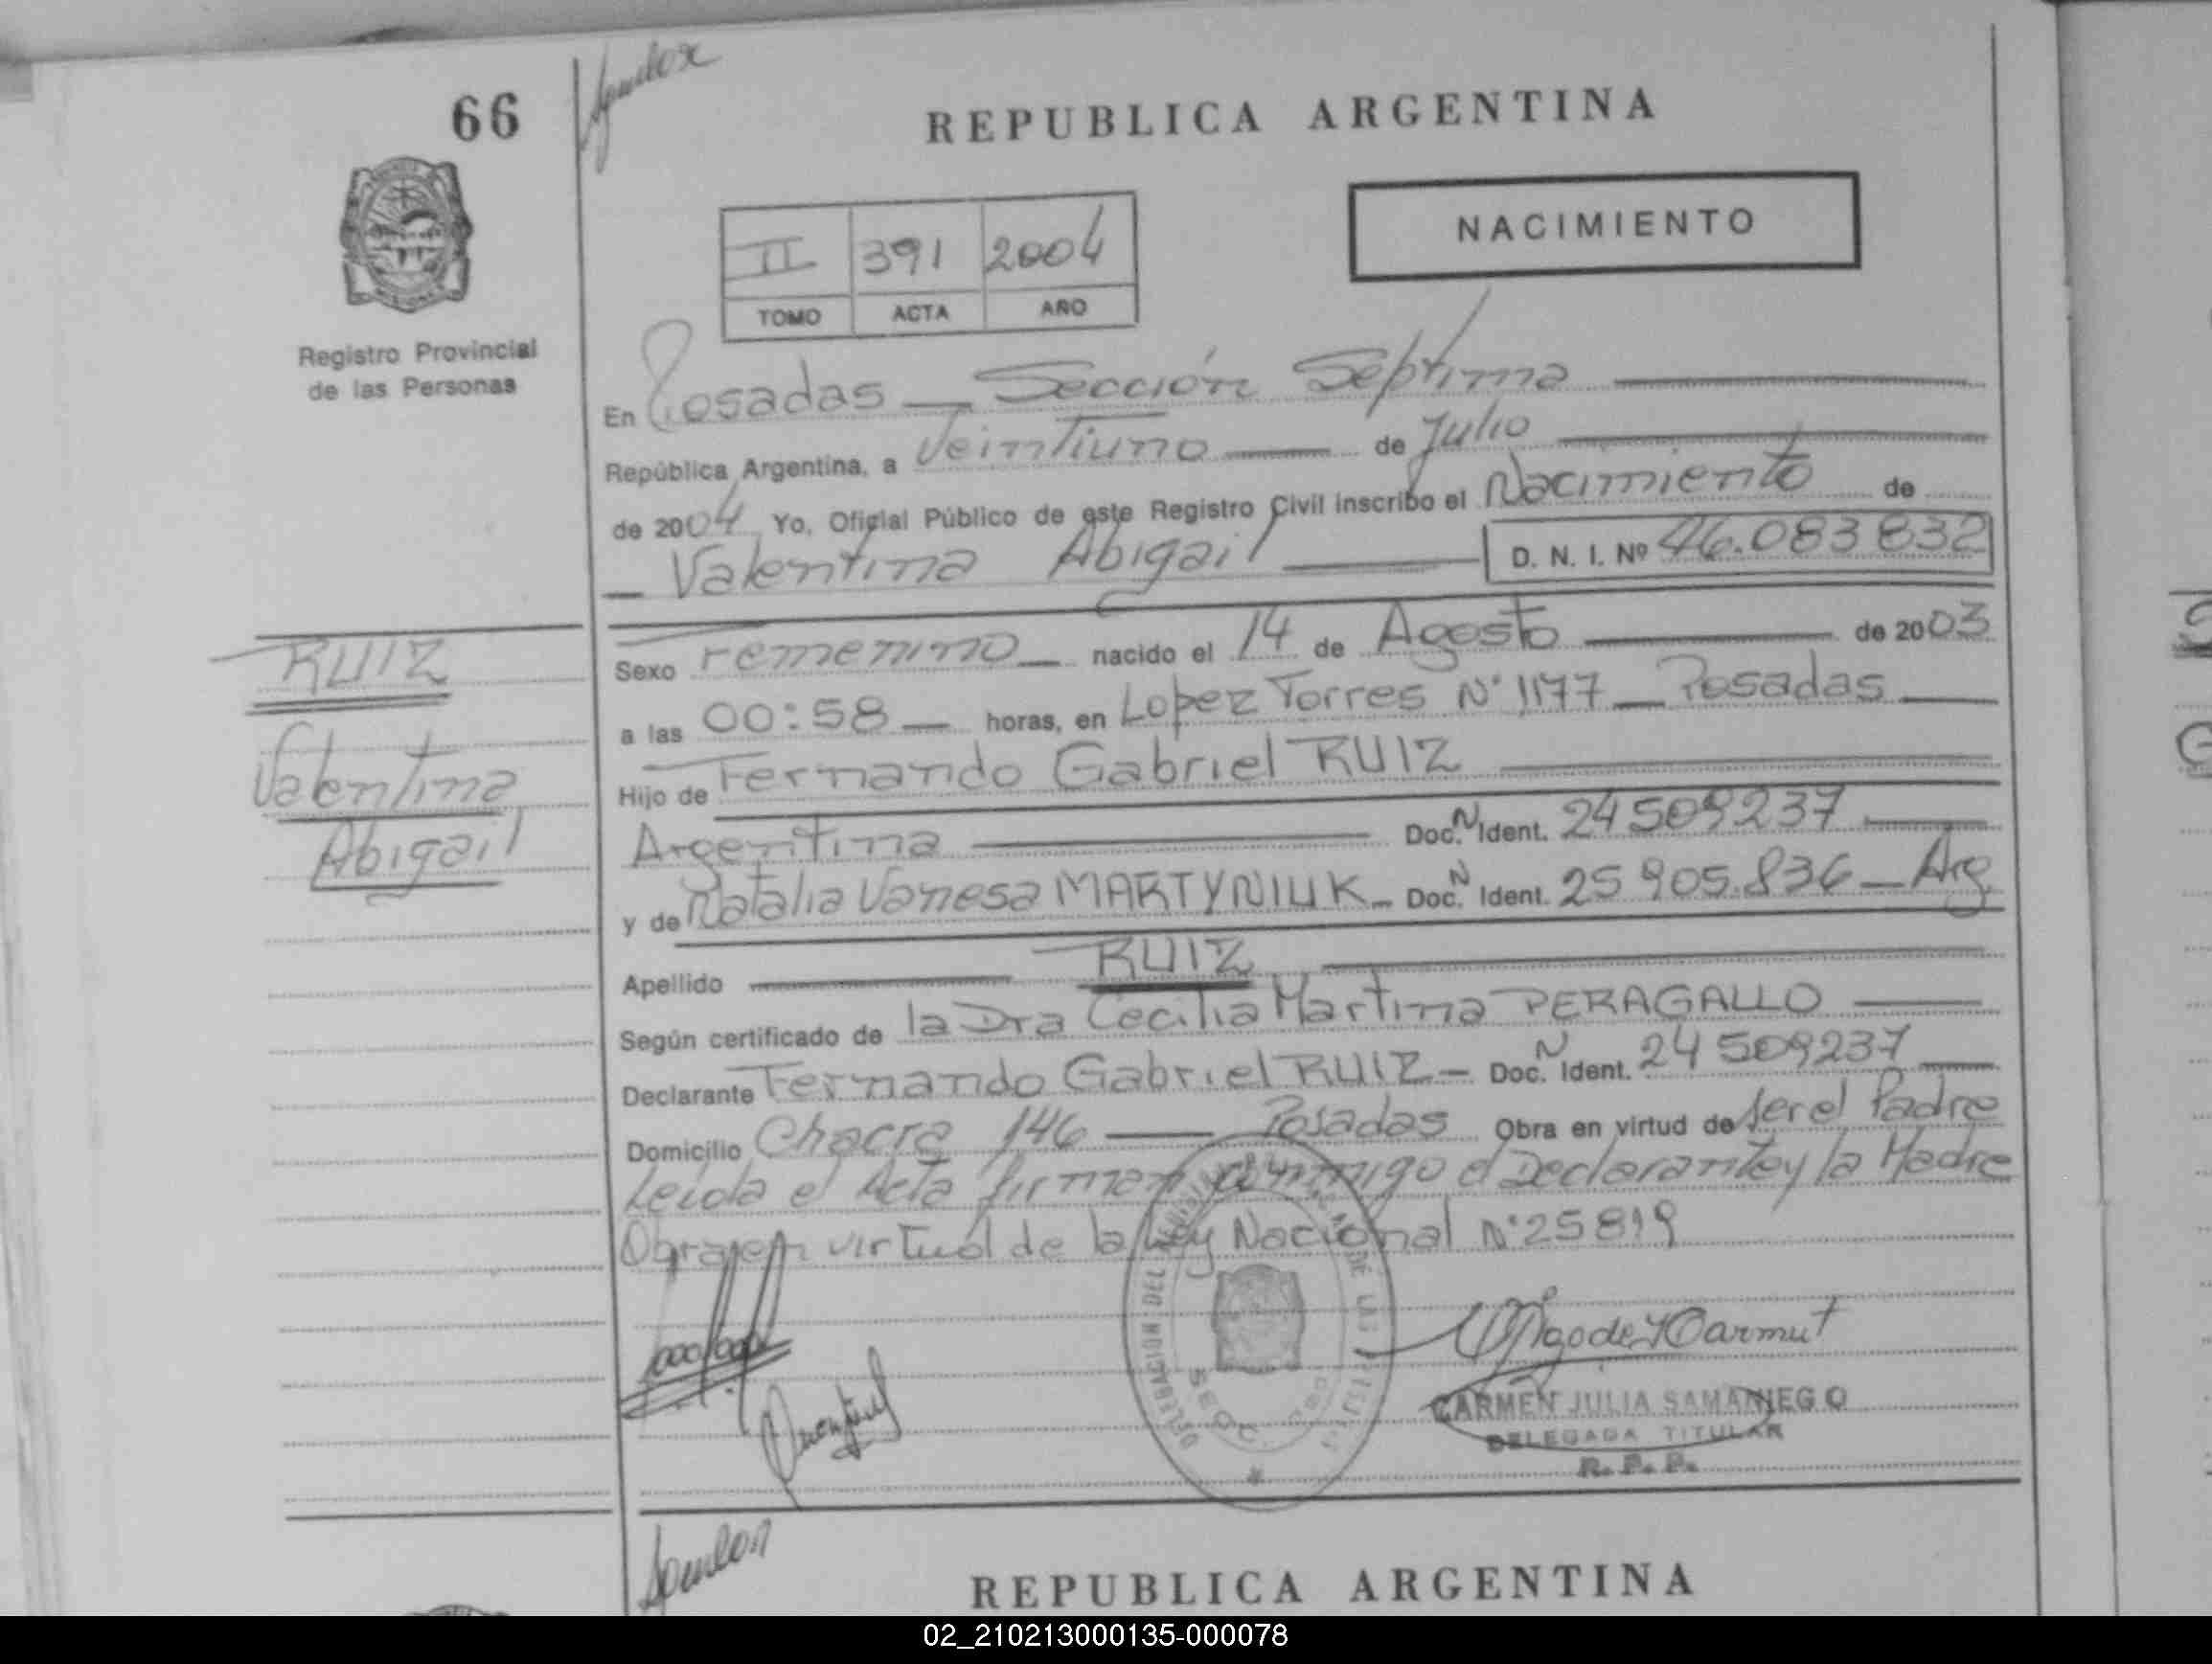 66
REPUBLICA ARGENTINA
NACIMIENTO
II 391 2004
TOMO ACTA AÑO
Registro Provincial
de las Personas
En Posadas — Sección Séptima
República Argentina, a Veintiuno — de Julio
de 2004 Yo, Oficial Público de este Registro Civil inscribo el Nacimiento de
— Valentina Abigail — D. N. I. Nº 46.083832
RUIZ
Valentina
Abigail
Sexo Femenino — nacido el 14 de Agosto — de 2003
a las 00:58 — horas, en Lopez Torres N° 1177 — Posadas —
Hijo de Fernando Gabriel RUIZ
Argentina — Doc. N Ident. 24509237 —
y de Natalia Vanesa MARTYNIUK — Doc. N Ident. 25905.836 — Arg
Apellido — RUIZ —
Según certificado de la Dra Cecilia Martina PERAGALLO —
Declarante Fernando Gabriel RUIZ — Doc. N Ident. 24509237 —
Domicilio Chacra 146 — Posadas Obra en virtud de ser el Padre
Leida el Acta firman conmigo el Declarante y la Madre
Obra en virtud de la Ley Nacional N°25819
DELEGACION DEL DE LAS
CARMEN JULIA SAMANIEGO
DELEGADA TITULAR
R. P. P.
REPUBLICA ARGENTINA
02_210213000135-000078